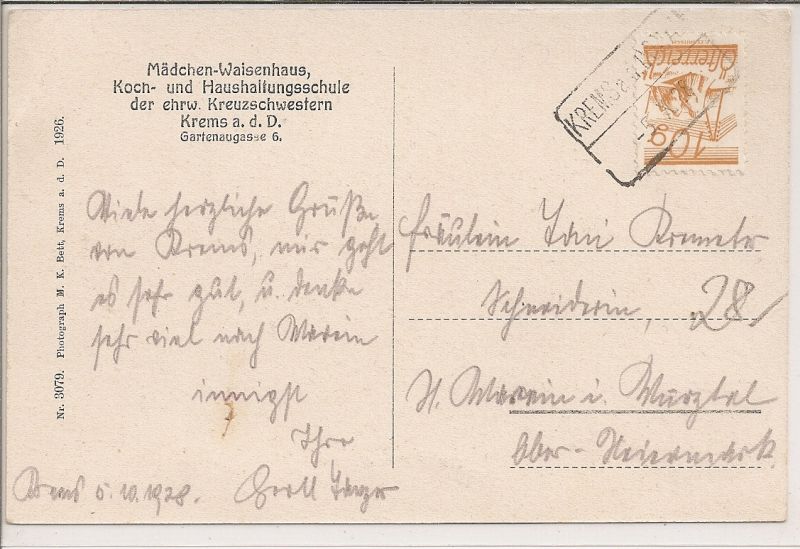 Mädchen-Waisenhaus,
Koch- und Haushaltungsschule
der ehrw. Kreuzschwestern
Krems a. d. D.
Gartenaugasse 6.
Nr. 3079. Photograph M. K. Bett, Krems a. d. D. 1926.
Viele herzliche Grüße
von Krems, mir geht
es sehr gut, u. denke
sehr viel nach Marein
innigst
Ihre
Krems 5.10.1928.
KREMS a.d.
Österreich
10 g
Fräulein Toni
Schneiderin,
28
St. Marein i. Mürztal
Ober-Steiermark